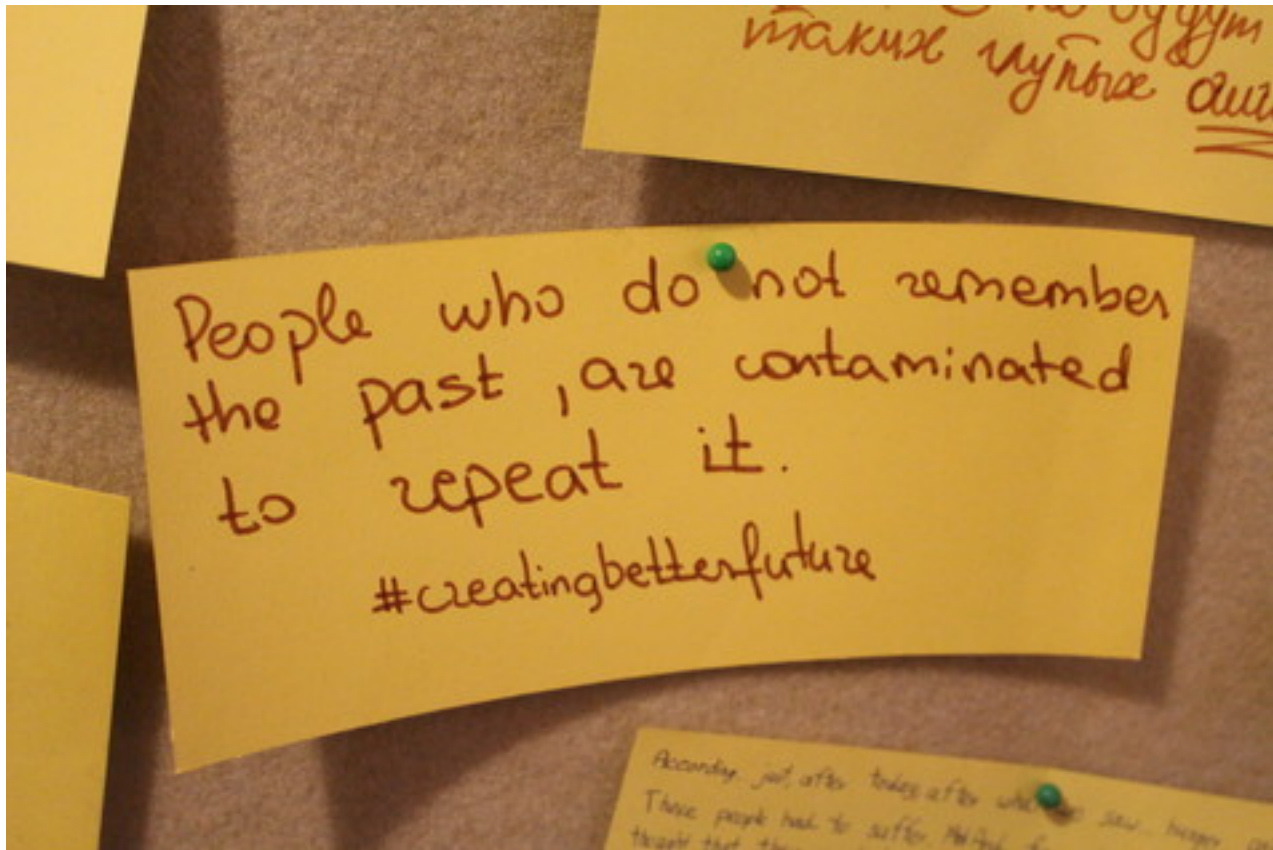 будут
таких глупых
People who do not remember
the past, are contaminated
to repeat it.
#creatingbetterfuture
According just after today after saw hunger
These people had to suffer
thought that